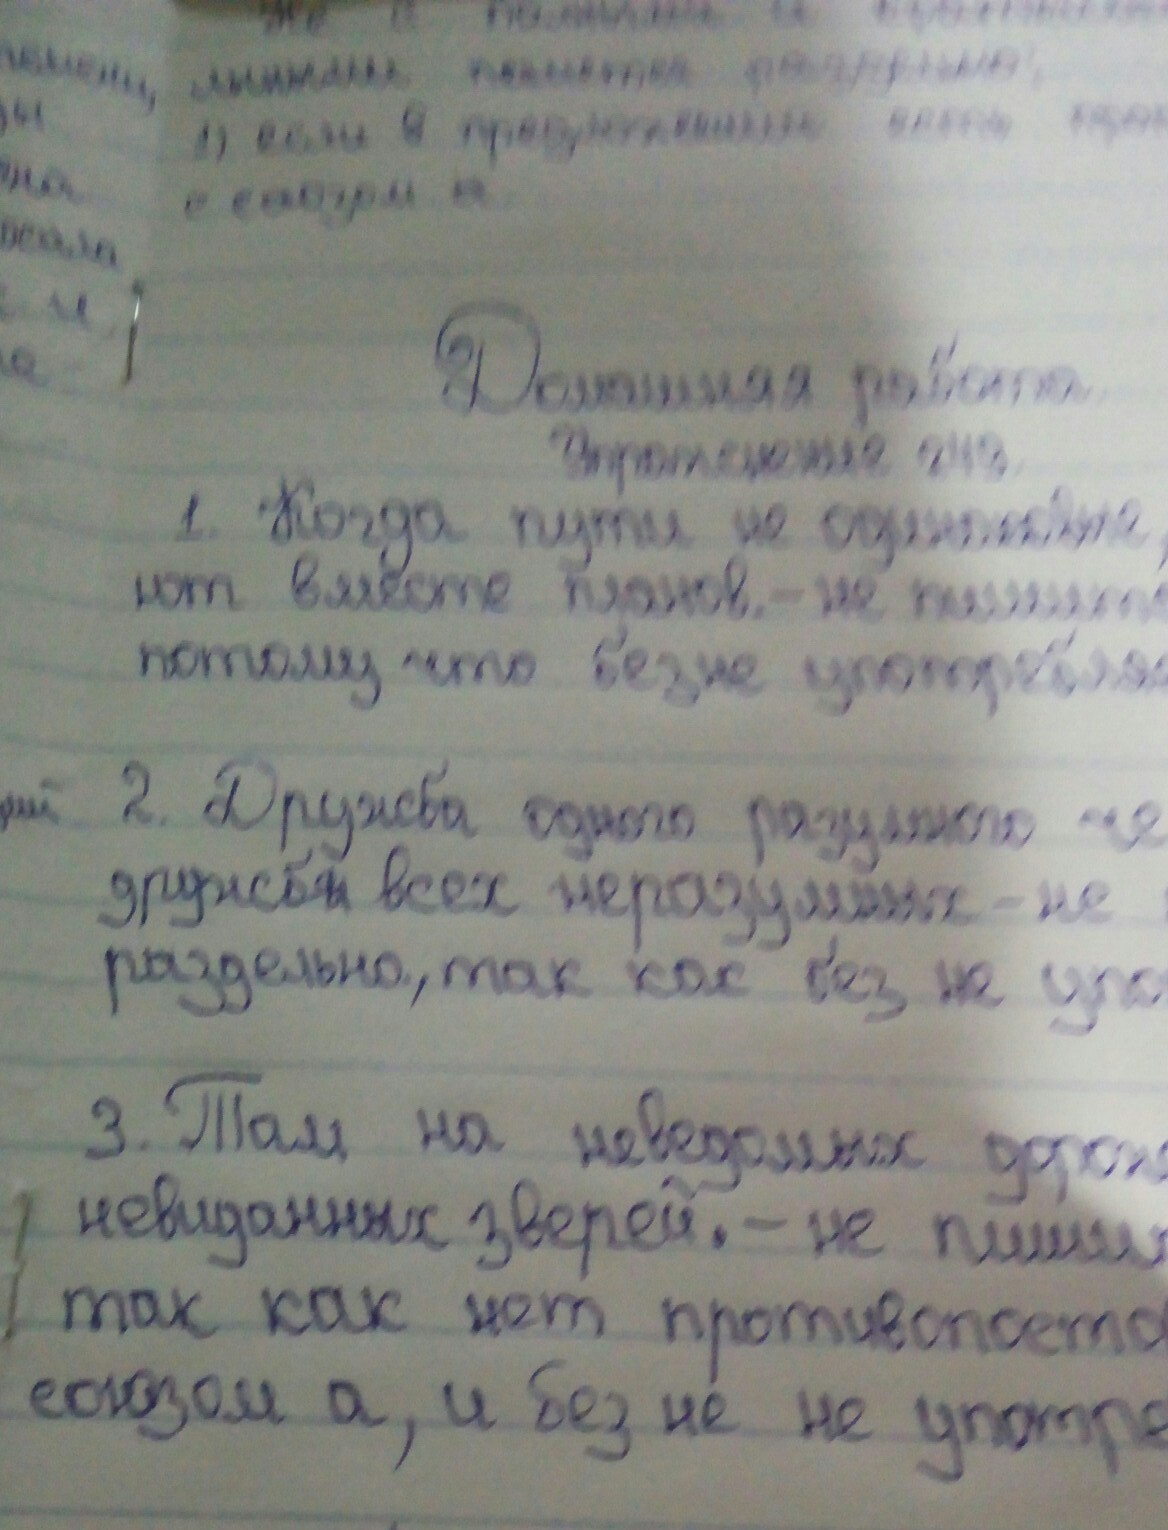 Не с полными и
1) если в предложении есть
с союзом а.
Домашняя работа.
Упражнение 243.
1. Когда пути не одинаковые,
ют вместе планов. - не пишит
потому что без не употребля
2. Дружба одного разумного че
дружбы всех неразумных - не
раздельно, так как без не упо
3. Там на неведомых дорож
невиданных зверей. - не пиши
так как нет противопоста
союзом а, и без не не употре